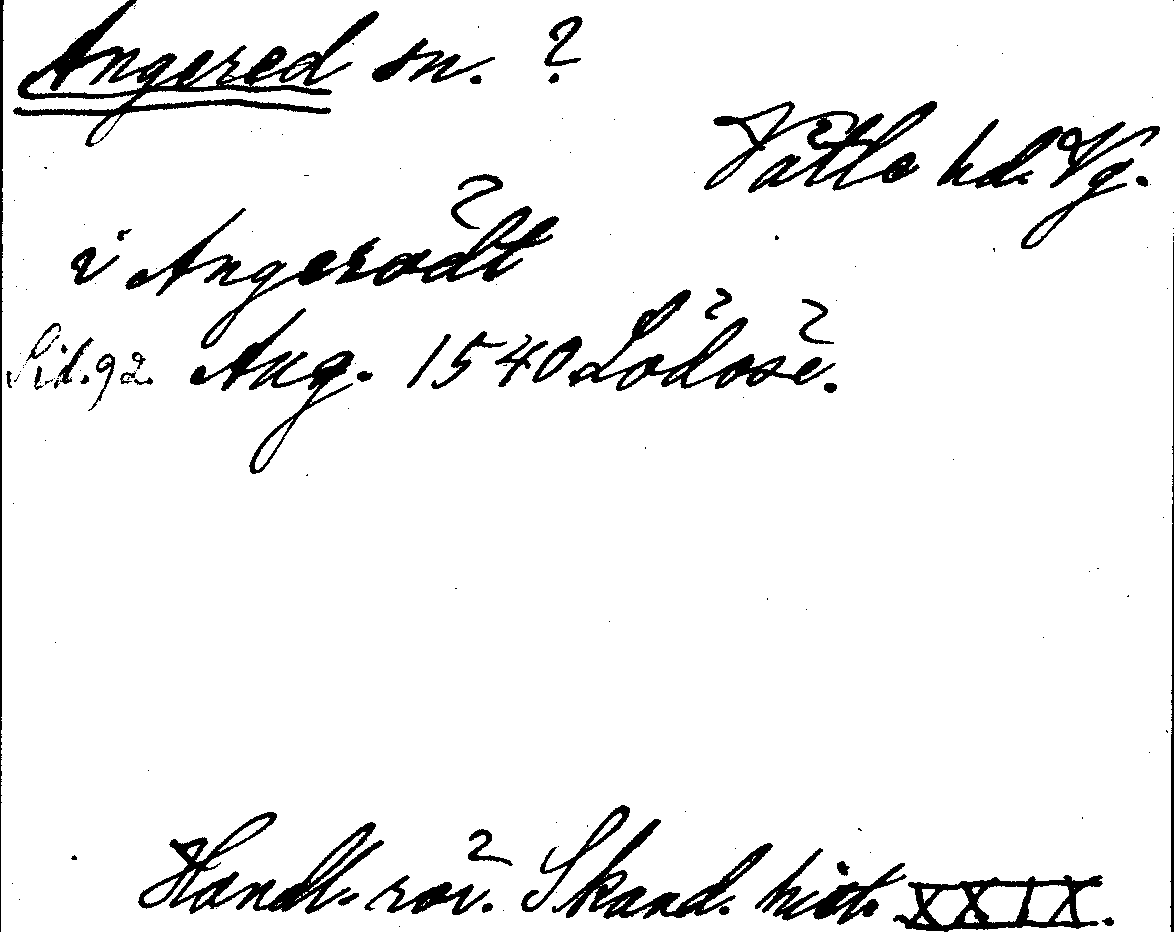 Angered sn. ?
Vättle hd. Vg.
i Angerödt
Sid. 92. Aug. 1540 Lödöse.
Handl. rör. Skand. hist. XXIX.